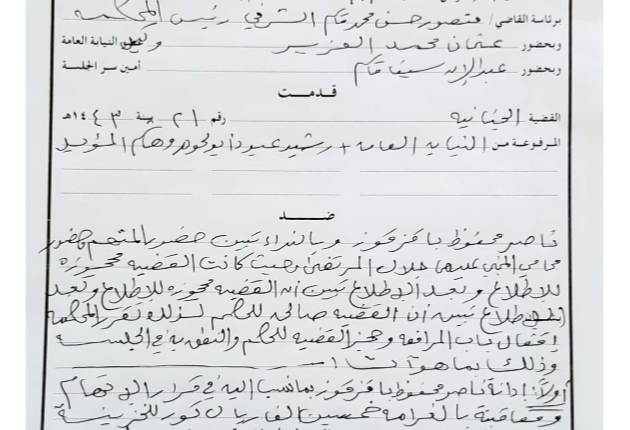 برئاسة القاضي/ منصور حسن محمد قاسم الشرفي رئيس المحكمة
وبحضور عثمان محمد العزير وكيل النيابة العامة
وبحضور عبدالإله سيف قاسم أمين سر الجلسة
قدمت
القضية الجنائية رقم ٢١ سنة ١٤٤٣هـ
المرفوعة من النيابة العامة + رشيد عبود أبو لحوم وهام المؤيد
ضد
ناصر محفوظ باقزقوز وبالنداء تبين حضور المتهم حضور
محامي المجني عليهما جلال المرتضى وحيث كانت القضية محجوزة
للإطلاع وبعد الإطلاع تبين أن القضية محجوزه للإطلاع وبعد
الإطلاع تبين أن القضية صالحه للحكم لذلك تقرر المحكمة
إقفال باب المرافعة وحجز القضية للحكم والنطق به في الجلسة
وذلك بما هو آت
أولاً: إدانة ناصر محفوظ باقزقوز بما نسب إليه في قرار الاتهام
ومعاقبته بالغرامة خمسين الف ريال تورد للخزينة